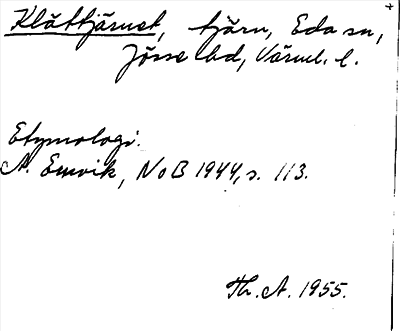 Klättjärnet, tjärn, Eda sn,
Jösse hd, Värml. l.
Etymologi:
N. Envik, NoB 1944, s. 113.
Th. A. 1955.